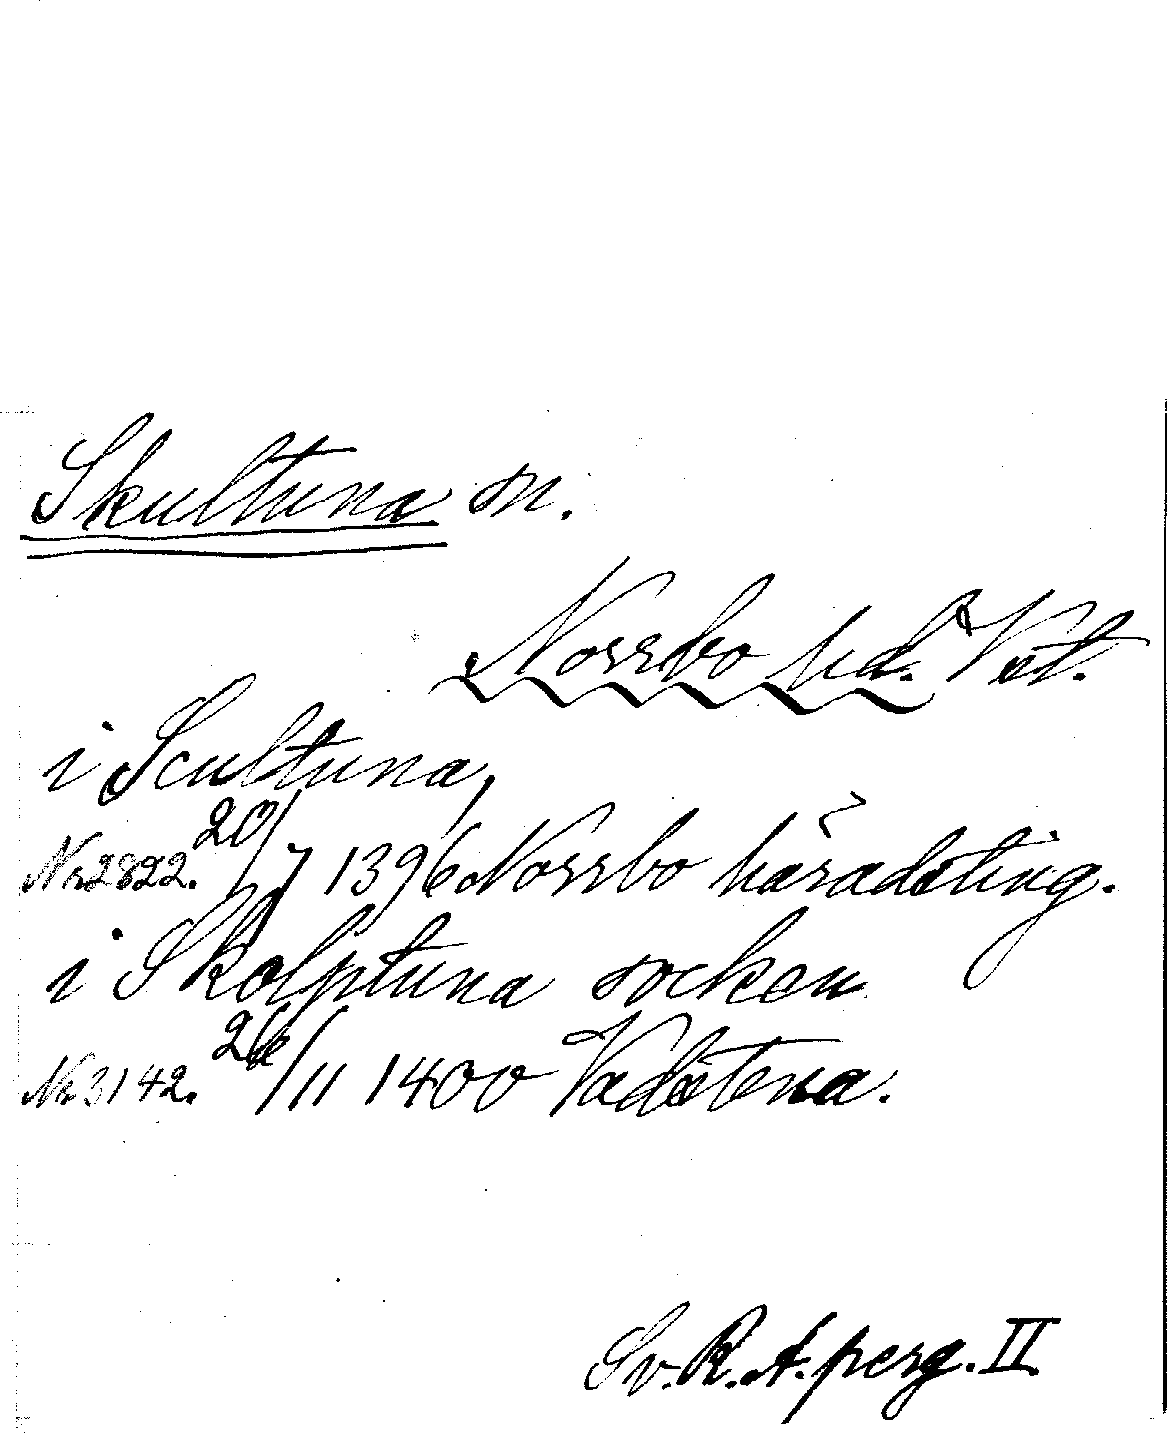 Skultuna sn.
Norrbo hd. Vstl.
i Scultuna,
Nr 2822. 20/7 1396 Norrbo häradsting.
i Skolptuna socken
Nr 3142. /11 1400 Vadstena.
Sv. R. A. perg. II